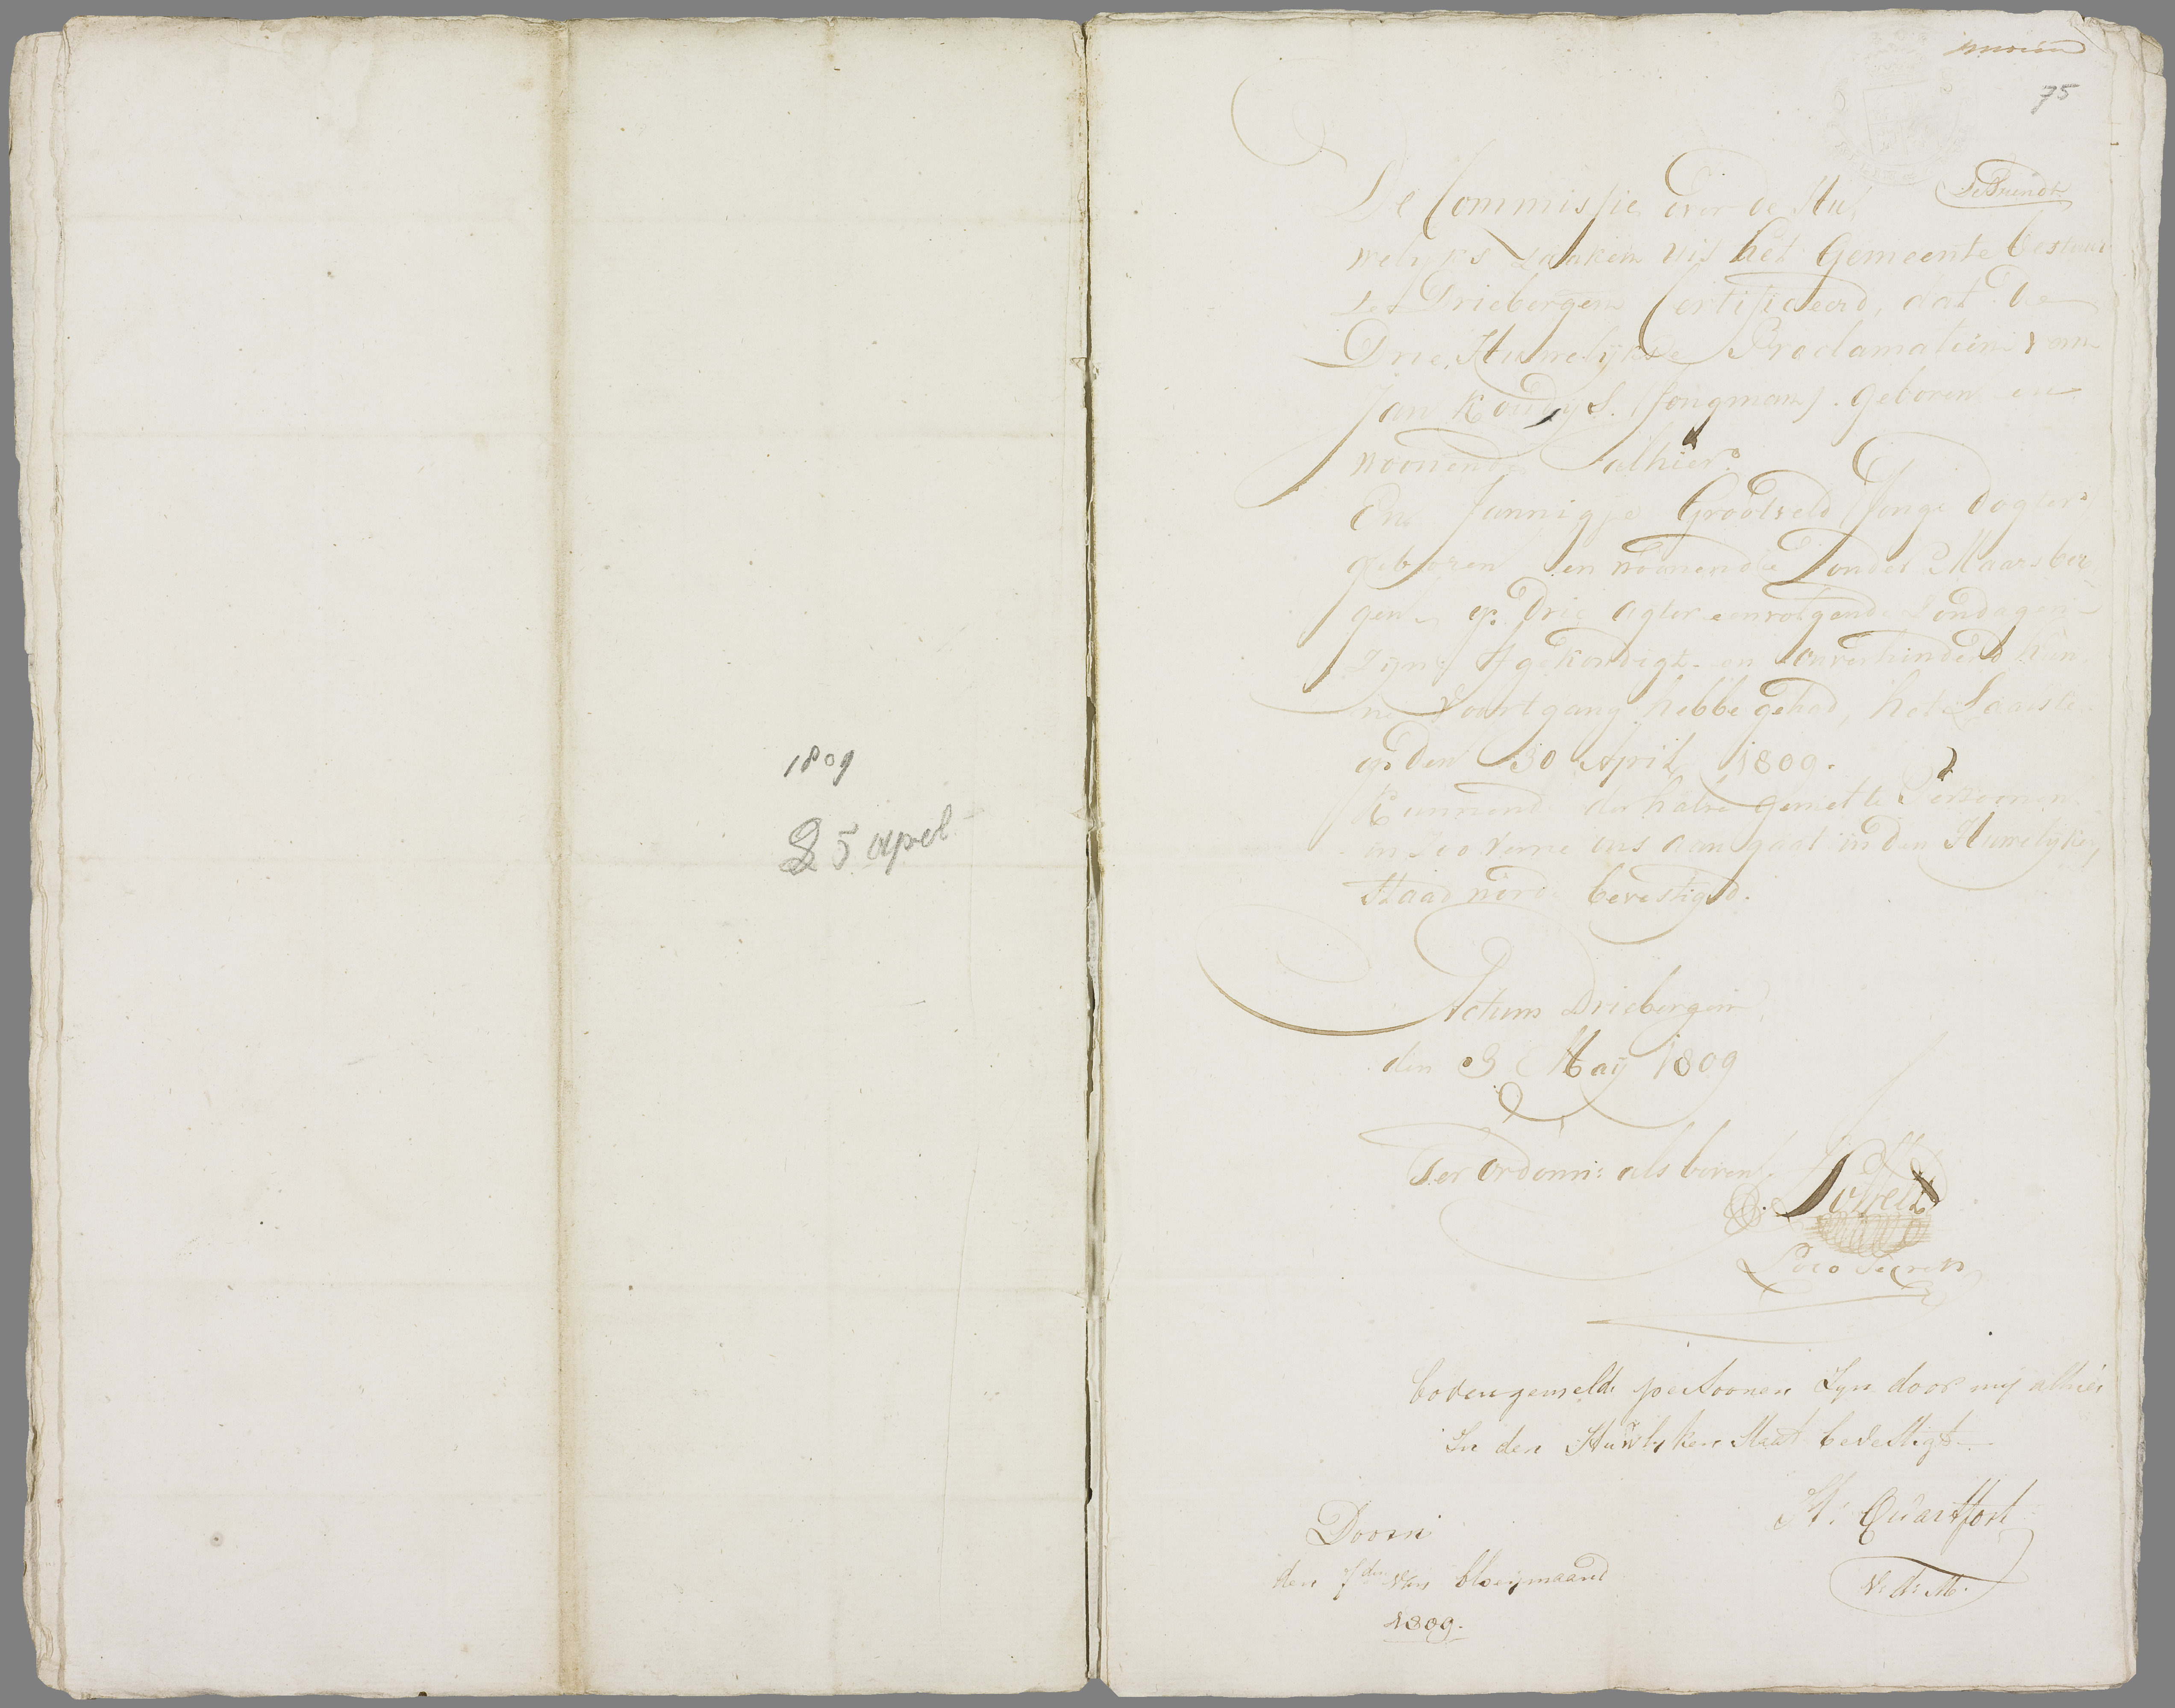 1809
25 april
75
De Commissie over de Hu,
welyks zaaken uit het Gemeente bestuur
Driebergen Certificeerd, dat de
Drie Huwelykse Proclamatien van
Jan Koudys. (Jongman). geboren en
woonende alhier.
En Jannigje Grootveld (Jonge dogter)
geboren en woonende onder Maarsber,
gen, op Drie agter eenvolgende Sondagen
Zyn Afgekondigt. en onverhinderd hun,
ne voortgang hebbe gehad, het Laaste
op den 30 April 1809.
Kunnende derhalve gemelte Persoonen
in zoo verre ons aan gaat in den Huwelyken
Staad werde bevestigd.
Actum Driebergen
den 3 May 1809
Ter ordonn: als boven
Loco Secrets
bovengemelde persoonen Zyn door my alhier
In den Huwlyken Staat bevestigt
Doorn
den 7den van bloeymaand
1809.
V: d: M: